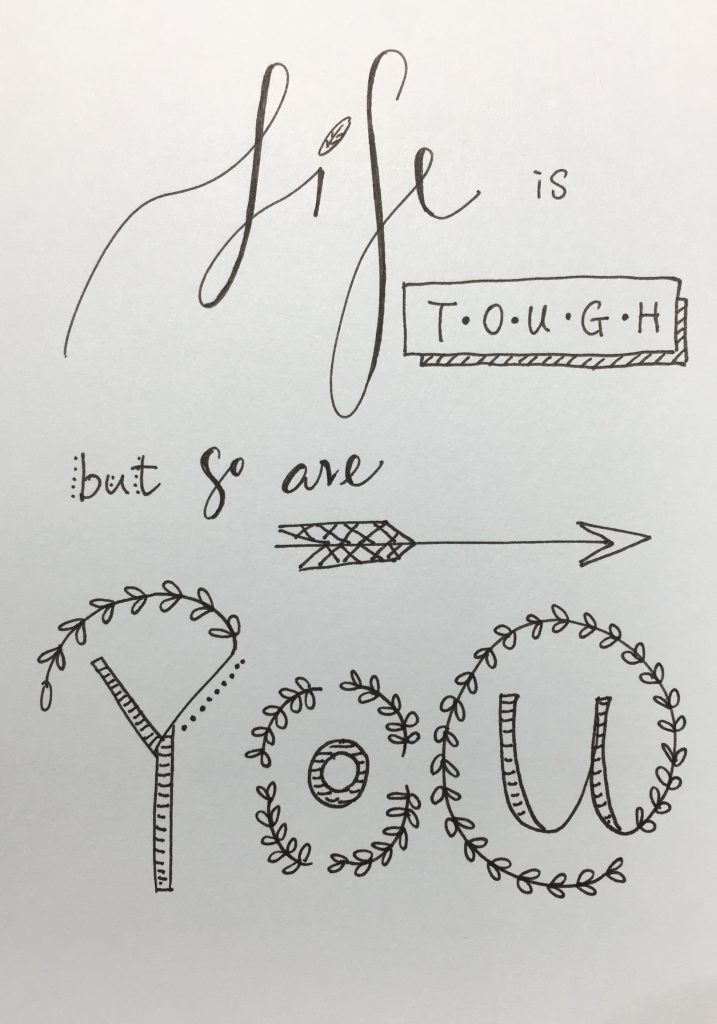 Life is
T·O·U·G·H
but so are
You